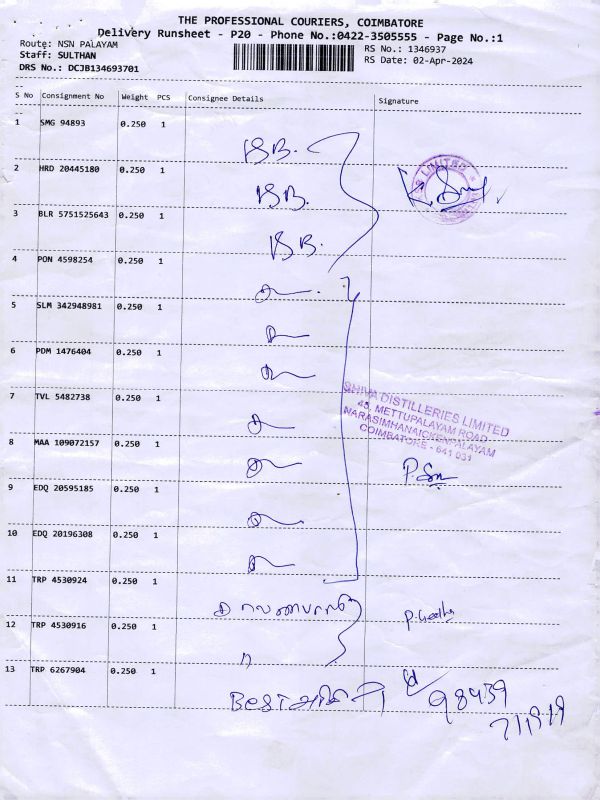 THE PROFESSIONAL COURIERS, COIMBATORE
Delivery Runsheet - P20 - Phone No.:0422-3505555 - Page No.:1
Route: NSN PALAYAM RS No.: 1346937
Staff: SULTHAN RS Date: 02-Apr-2024
DRS No.: DCJB134693701
S No Consignment No Weight PCS Consignee Details Signature
1 SMG 94893 0.250 1
2 HRD 20445180 0.250 1
3 BLR 5751525643 0.250 1
4 PON 4598254 0.250 1
5 SLM 342948981 0.250 1
6 PDM 1476404 0.250 1
7 TVL 5482738 0.250 1
SHIVA DISTILLERIES LIMITED
45, METTUPALAYAM ROAD
NARASIMHANAICKENPALAYAM
COIMBATORE - 641 031
8 MAA 109072157 0.250 1
9 EDQ 20595185 0.250 1
10 EDQ 20196308 0.250 1
11 TRP 4530924 0.250 1
P. Geetha
12 TRP 4530916 0.250 1
13 TRP 6267904 0.250 1
98439
71919